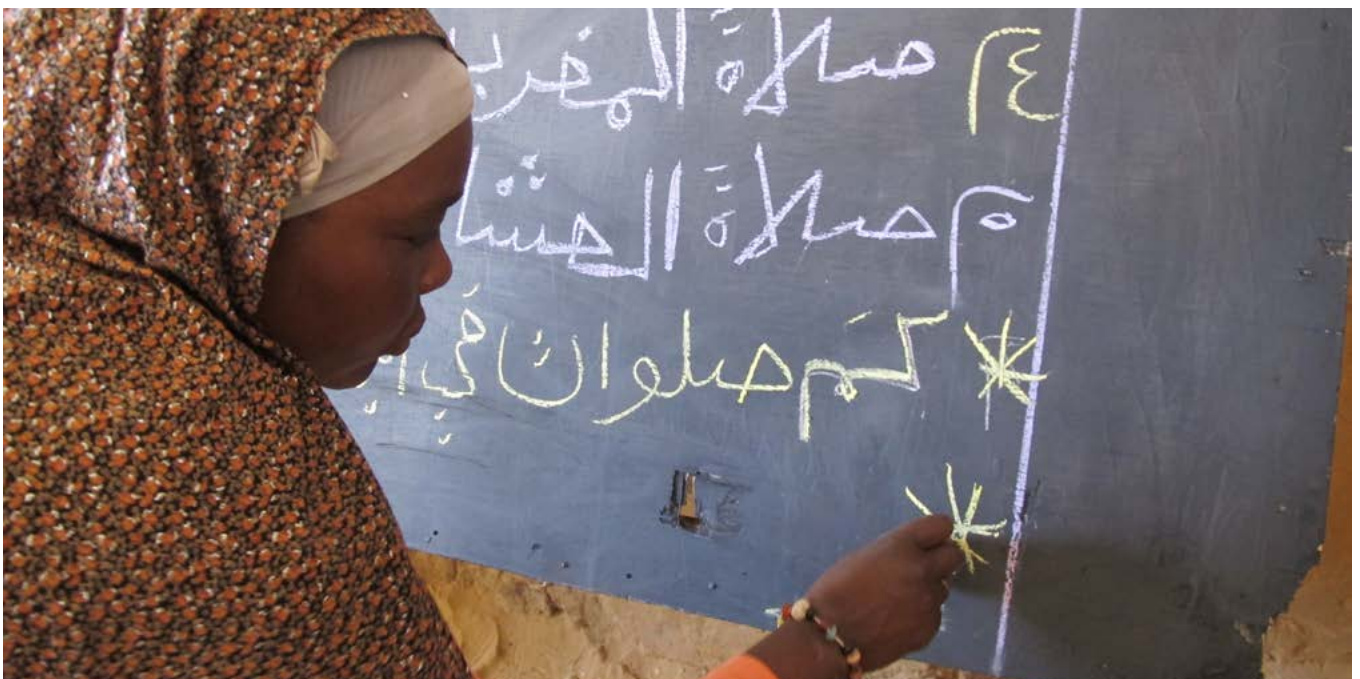 ٤ صلاة المغرب
٥ صلاة العشا
* كم صلوات في
*